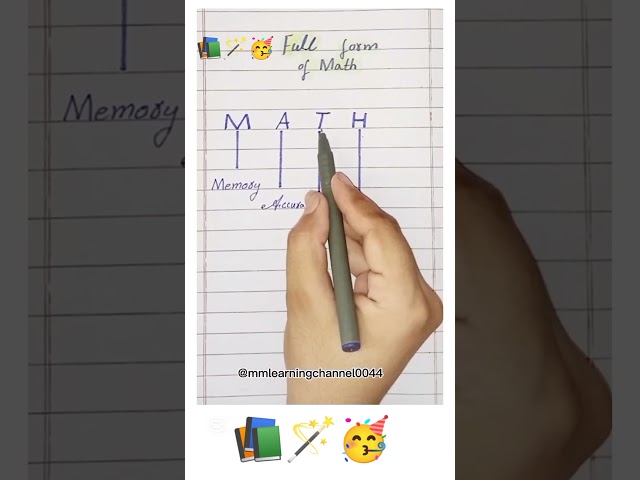 Full form
of Math
M A T H
Memory
Memory
@mmlearningchannel0044